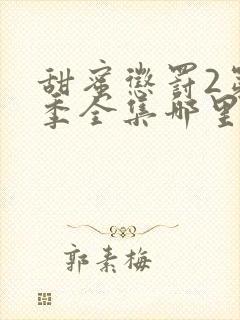 甜蜜惩罚2第
季全集哪里
郭素梅